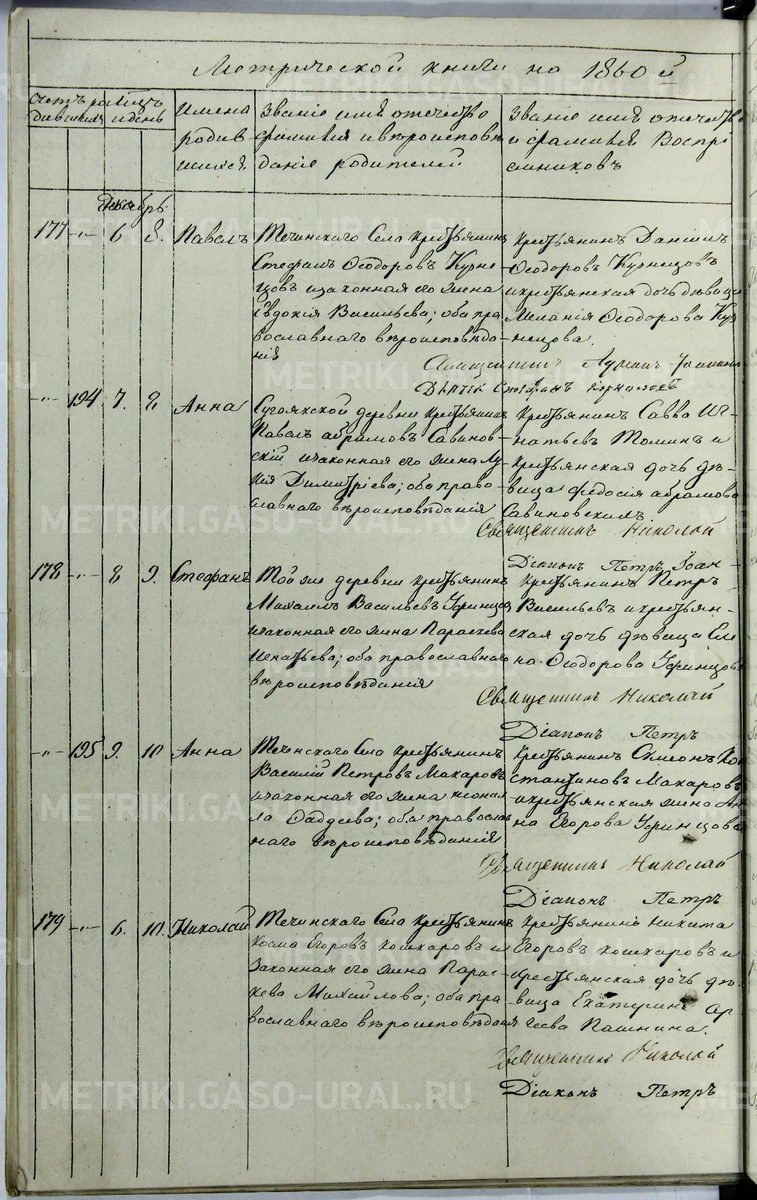 Метрической книги на 1860 й
Счетъ родившихся
Мѣсяцъ и день
Имена родившихся
Званіе имя отечество
фамилія и вѣроисповѣ
даніе родителей
Званіе имя отечество
и фамилія Воспрі
емниковъ
Декабрь
177 -„- 6 8. Павелъ
Теченскаго Села крестьянинъ
Стефанъ Ѳеодоровъ Кузне
цовъ и законная его жена
Евдокія Васильева; оба пра
вославнаго вѣроисповѣда-
нія
Крестьянинъ Даніилъ
Ѳеодоровъ Кузнецовъ
и крестьянская дочь дѣвица
Меланія Ѳеодорова Куз
нецова.
Священникъ
-„- 194 7. 8 Анна
Сугоякской деревни крестьянинъ
Павелъ Абрамовъ Савинов-
скій и законная его жена Лу
кія Димитріева; оба право-
славнаго вѣроисповѣданія
Крестьянинъ Савва Иг-
натьевъ Толинъ и
крестьянская дочь дѣ-
вица Ѳедосія Абрамова
Савиновскихъ
Священникъ Николай
Діаконъ Петръ
178 -„- 8 9. Стефанъ
Той же деревни крестьянинъ
Михаилъ Васильевъ Уфинцовъ
и законная его жена Параскева
Игнатьева; оба православнаго
вѣроисповѣданія
Крестьянинъ Петръ
Васильевъ и крестьян-
ская дочь дѣвица Еле
на Ѳеодорова Уфинцовы
Священникъ Николай
Діаконъ Петръ
-„- 195 9. 10 Анна
Теченскаго Села крестьянинъ
Василій Петровъ Макаровъ
и законная его жена Неони
ла Ѳаддеева; оба православ
наго вѣроисповѣданія
Крестьянинъ Симеонъ Кон
стантиновъ Макаровъ
и крестьянская жена Ан
на Егорова Уфинцова
Священникъ Николай
Діаконъ Петръ
179 -„- 6. 10. Николай
Теченскаго Села крестьянинъ
Косма Егоровъ Кошкаровъ и
законная его жена Парас-
кева Михайлова; оба пра-
вославнаго вѣроисповѣданія
Крестьянинъ Никита
Егоровъ Кошкаровъ и
крестьянская дочь дѣ-
вица Екатерина Ар
геева Пашнина.
Священникъ Николай
Діаконъ Петръ
METRIKI.GASO-URAL.RU